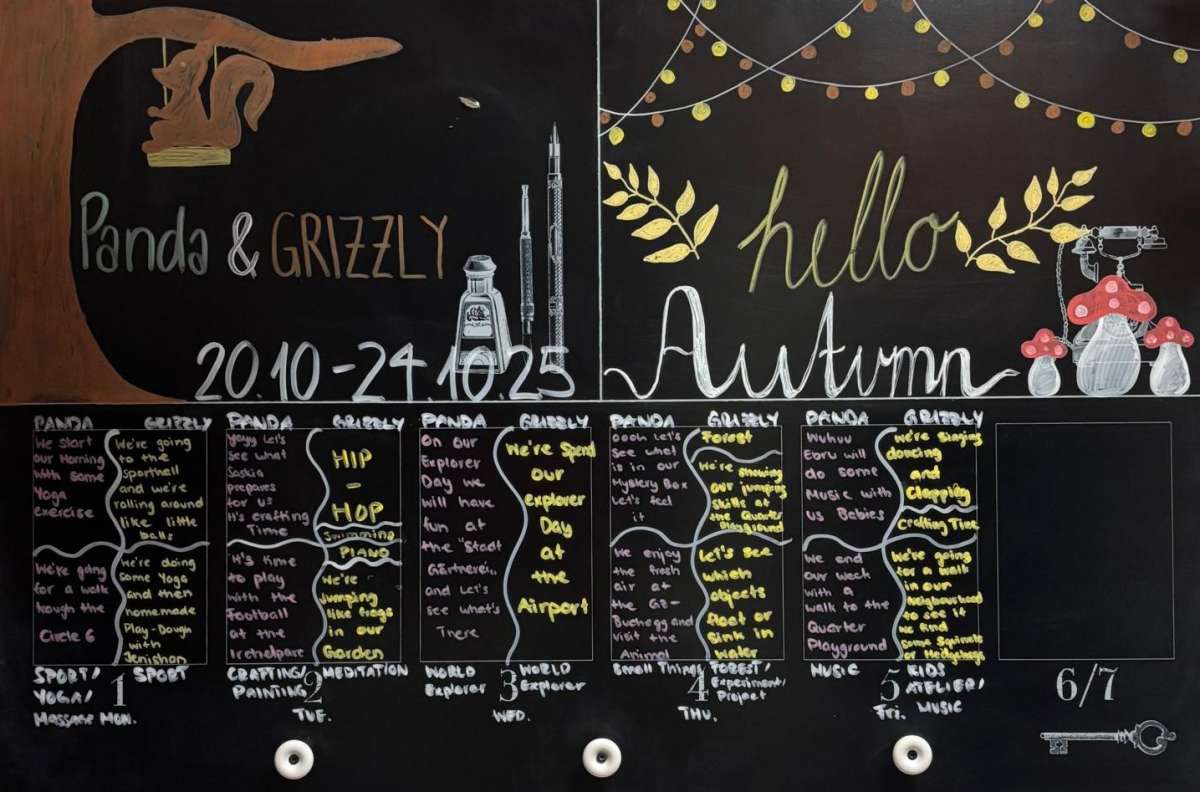 Panda & GRIZZLY
20.10-24.10.25
hello
Autumn
PANDA
We start
our Morning
with some
Yoga
exercise
We're going
for a walk
hough the
Circle 6
GRIZZLY
We're going
to the
sporthall
and we're
rolling around
like little
balls
We're doing
some Yoga
and then
homemade
Play-Dough
with
Jenishan
SPORT/
YOGA/
Massage MON.
SPORT
1
PANDA
Yayy Let's
see what
Saskia
prepares
for us
It's crafting
Time
It's time
to play
with the
Football
at the
Irchelpark
GRIZZLY
HIP
-
HOP
Swimming
PIANO
We're
jumping
like frogs
in our
Garden
CRAFTING/
PAINTING
MEDITATION
2
TUE.
PANDA
On our
Explorer
Day we
will have
fun at
the "Stadt
Gärtnerei"
and Let's
see what's
There
GRIZZLY
We're Spend
our
explorer
Day
at
the
Airport
WORLD
Explorer
WORLD
Explorer
3
WED.
PANDA
oooh Let's
see what
is in our
Mystery Box
Let's feel
it
We enjoy
the fresh
air at
the GZ-
Buchegg and
visit the
Animal
GRIZZLY
Forest
We're showing
our jumping
skills at
the Quarter
Playground
Let's see
which
objects
float or
sink in
water
Small Things
FOREST/
Experiment/
Project
4
THU.
PANDA
Wuhuu
Ebru will
do some
Music with
us Babies
We end
our week
with a
walk to the
Quarter
Playground
GRIZZLY
We're singing
dancing
and
Clapping
Crafting Time
We're going
for a walk
in our
Neighbourhood
to see if
we find
some Squirrels
or Hedgehogs
MUSIC
KIDS
ATELIER/
MUSIC
5
Fri.
6/7